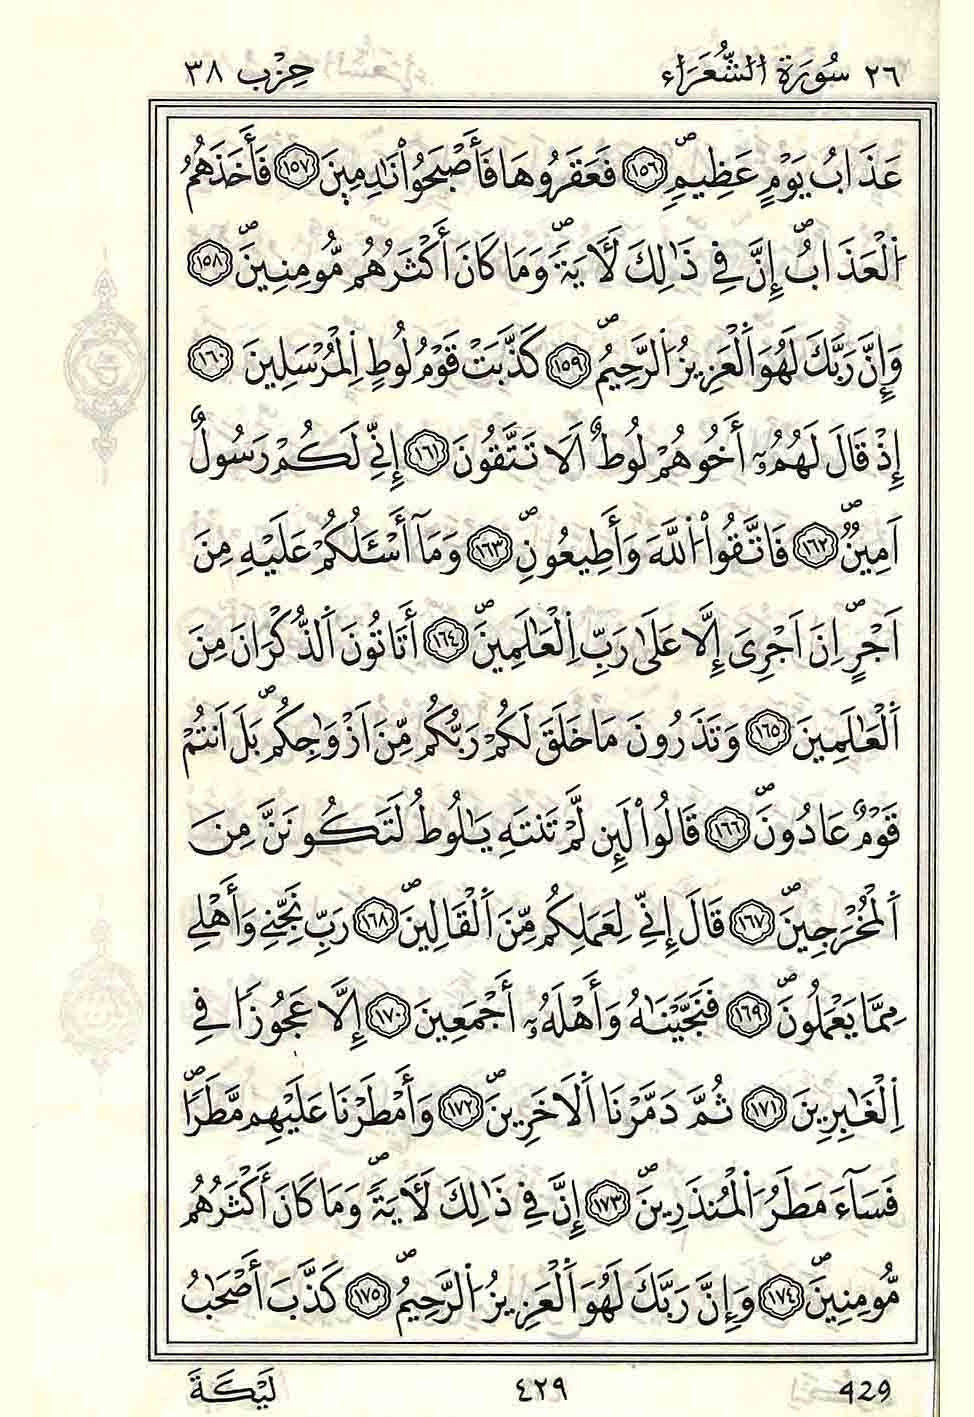 ٢٦ سُورَةُ الشُّعَرَاء حِزْب ٣٨
عَذَابُ يَوْمٍ عَظِيمٍۖ ١٥٦ فَعَقَرُوهَا فَأَصْبَحُواْ نَٰدِمِينَ ١٥٧ فَأَخَذَهُمُ
اُ۬لْعَذَابُۖ إِنَّ فِي ذَٰلِكَ لَأٓيَةٗۖ وَمَا كَانَ أَكْثَرُهُم مُّومِنِينَۖ ١٥٨
وَإِنَّ رَبَّكَ لَهُوَ اَ۬لْعَزِيزُ اُ۬لرَّحِيمُۖ ١٥٩ كَذَّبَتْ قَوْمُ لُوطٍ اِ۬لْمُرْسَلِينَ ١٦٠
إِذْ قَالَ لَهُمُۥٓ أَخُوهُمْ لُوطٌ اَلَا تَتَّقُونَ ١٦١ إِنِّي لَكُمْ رَسُولٌ
اَمِينٞۖ ١٦٢ فَاتَّقُواْ اُ۬للَّهَ وَأَطِيعُونِۖ ١٦٣ وَمَآ أَسْـَٔلُكُمْ عَلَيْهِ مِنَ
اَجْرٍۖ اِنَ اَجْرِيَ إِلَّا عَلَىٰ رَبِّ اِ۬لْعَٰلَمِينَۖ ١٦٤ أَتَاتُونَ اَ۬لذُّكْرَانَ مِنَ
اَ۬لْعَٰلَمِينَ ١٦٥ وَتَذَرُونَ مَا خَلَقَ لَكُمْ رَبُّكُم مِّنَ اَزْوَٰجِكُمۖ بَلَ اَنتُمْ
قَوْمٌ عَادُونَۖ ١٦٦ قَالُواْ لَئِن لَّمْ تَنتَهِ يَٰلُوطُ لَتَكُونَنَّ مِنَ
اَ۬لْمُخْرَجِينَۖ ١٦٧ قَالَ إِنِّي لِعَمَلِكُم مِّنَ اَ۬لْقَالِينَۖ ١٦٨ رَبِّ نَجِّنِي وَأَهْلِي
مِمَّا يَعْمَلُونَۖ ١٦٩ فَنَجَّيْنَٰهُ وَأَهْلَهُۥٓ أَجْمَعِينَ ١٧٠ إِلَّا عَجُوزٗا فِي
اِ۬لْغَٰبِرِينَ ١٧١ ثُمَّ دَمَّرْنَا اَ۬لَاخَرِينَۖ ١٧٢ وَأَمْطَرْنَا عَلَيْهِم مَّطَرٗاۖ
فَسَآءَ مَطَرُ اُ۬لْمُنذَرِينَۖ ١٧٣ إِنَّ فِي ذَٰلِكَ لَأٓيَةٗۖ وَمَا كَانَ أَكْثَرُهُم
مُّومِنِينَۖ ١٧٤ وَإِنَّ رَبَّكَ لَهُوَ اَ۬لْعَزِيزُ اُ۬لرَّحِيمُۖ ١٧٥ كَذَّبَ أَصْحَٰبُ
لَيْكَةَ ٤٢٩ 429